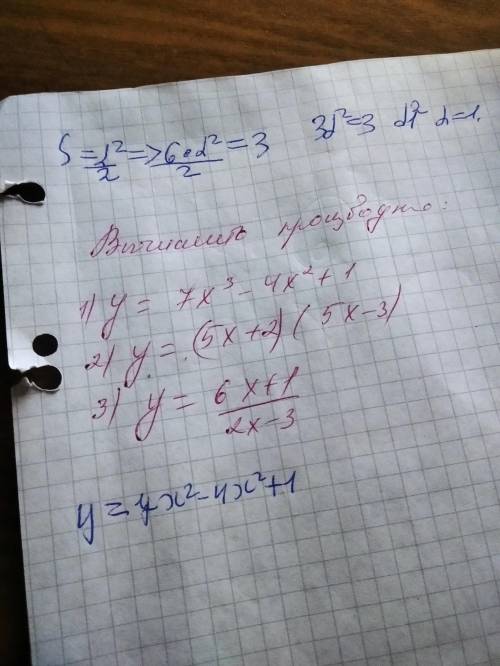 S = d²/2 => 6·d²/2 = 3 3d²=3 d² d=1.
Вычислить производную:
1) y = 7x³ - 4x² + 1
2) y = (5x+2)(5x-3)
3) y = 6x+1/2x-3
y = 7x² - 4x² + 1